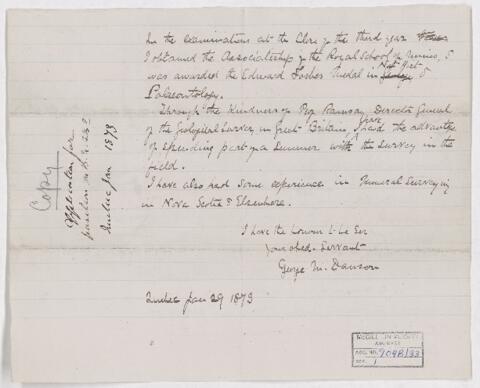 In the examinations at the Close of the third year
I obtained the Associateship of the Royal School of Mines, &
was awarded the Edward Forbes Medal in Nat Hist &
Palaeontology.
Through the Kindness of Prof Ramsay Director General
of the Geological Survey in Great Britain, I have had the advantage
of spending part of a Summer with the Survey in the
field.
I have also had some experience in General Surveying
in Nova Scotia & Elsewhere.
I have the honour to be Sir
Your obed. Servant
George M. Dawson
Quebec Jan 29 1873
Copy
Application for
position
Quebec Jan 1873
McGILL UNIVERSITY
ARCHIVES
ACC. NO. 
REF. 1